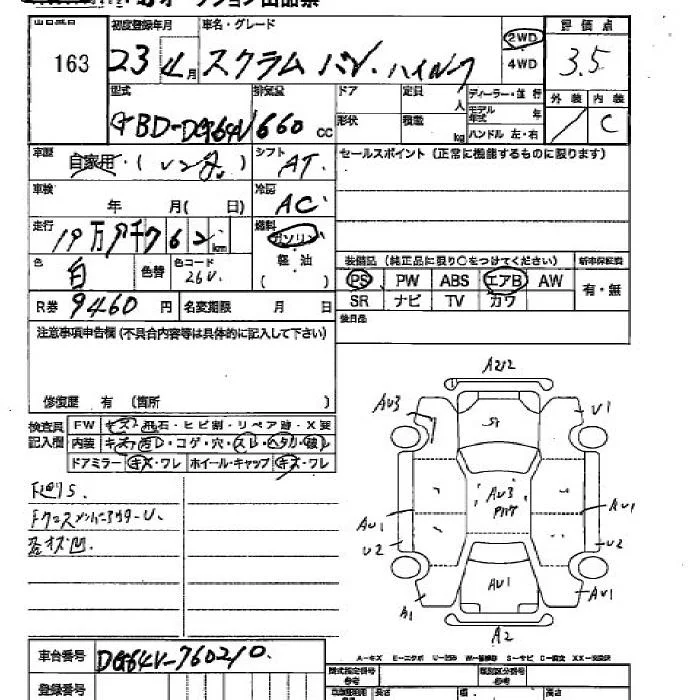 163
初度登録年月
車名・グレード
23年4月
スクラム バン ハイルーフ
2WD
4WD
評価点
3.5
外装
内装
C
型式
GBD-DG64V
排気量
660 cc
ドア
形状
定員
人
積載
kg
ディーラー・並行
モデル年式
年
ハンドル 左・右
車歴
自家用・( レンタ )
シフト
AT
セールスポイント (正常に機能するものに限ります)
車検
年 月( 日)
冷房
AC
走行
km
燃料
ガソリン
軽・油
( )
色
白
色替
色コード
26V
装備品 (純正品に限り○をつけてください)
新車保証書
PS PW ABS エアB AW
SR ナビ TV カワ
有・無
R券 9460 円
名変期限 月 日
後日品
注意事項申告欄 (不具合内容等は具体的に記入して下さい)
修復歴 有 (箇所 )
検査員記入欄
FW キズ・飛石・ヒビ割・リペア跡・X要
内装 キズ・汚D・コゲ・穴・スレ・ヘタリ・破レ
ドアミラー キズ・ワレ ホイール・キャップ キズ・ワレ
下廻りS.
A2l2
AU3
U1
S
AU3
AU1
U2
AU1
U2
AU1
A1
AU1
A2
A-キズ E-エクボ U-凹み W-補修跡 S-サビ C-腐食 XX-交換済
車台番号
DG64V-760210
登録番号
型式指定番号
類別区分番号
参考
参考
長さ
幅
高さ